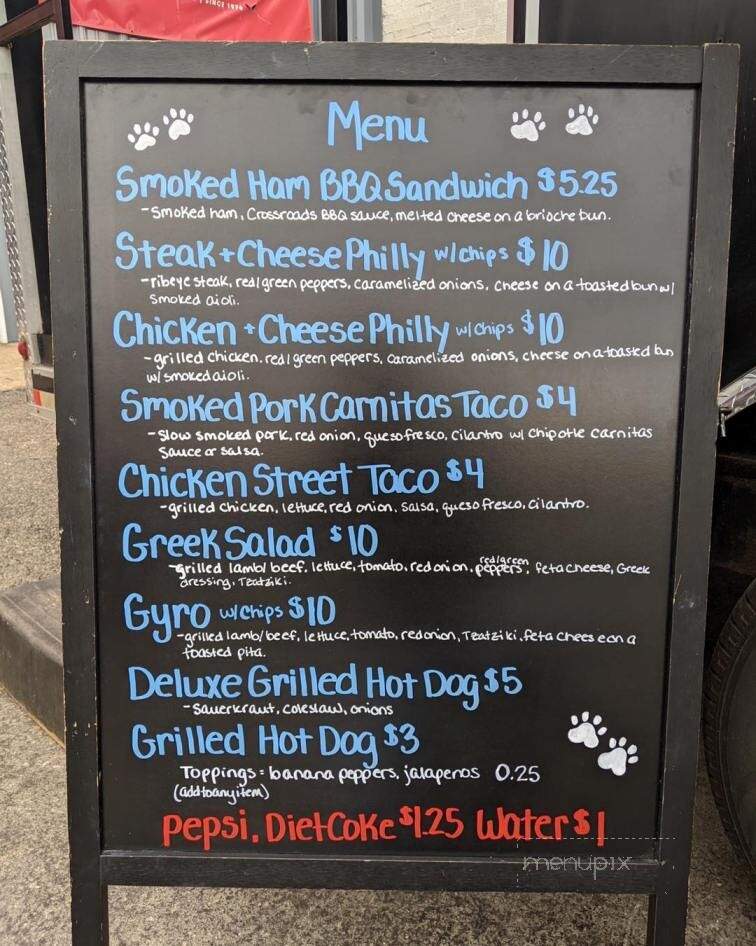 SINCE 199
Menu
Smoked Ham BBQ Sandwich $5.25
- Smoked ham, Crossroads BBQ sauce, melted cheese on a brioche bun.
Steak + Cheese Philly w/chips $10
- ribeye steak, red/green peppers, caramelized onions, cheese on a toasted bun w/
smoked aioli.
Chicken + Cheese Philly w/chips $10
- grilled chicken, red/green peppers, caramelized onions, cheese on a toasted bun
w/ smoked aioli.
Smoked Pork Carnitas Taco $4
- Slow smoked pork, red onion, queso fresco, cilantro w/ Chipotle carnitas
sauce or salsa.
Chicken Street Taco $4
- grilled chicken, lettuce, red onion, salsa, queso fresco, cilantro.
Greek Salad $10
- grilled lamb/beef, lettuce, tomato, red onion, red/green peppers, feta cheese, Greek
dressing, Tzatziki.
Gyro w/chips $10
- grilled lamb/beef, lettuce, tomato, red onion, Tzatziki, feta cheese on a
toasted pita.
Deluxe Grilled Hot Dog $5
- Sauerkraut, coleslaw, onions
Grilled Hot Dog $3
Toppings: banana peppers, jalapenos 0.25
(add to any item)
Pepsi, Diet Coke $1.25 Water $1
menupix